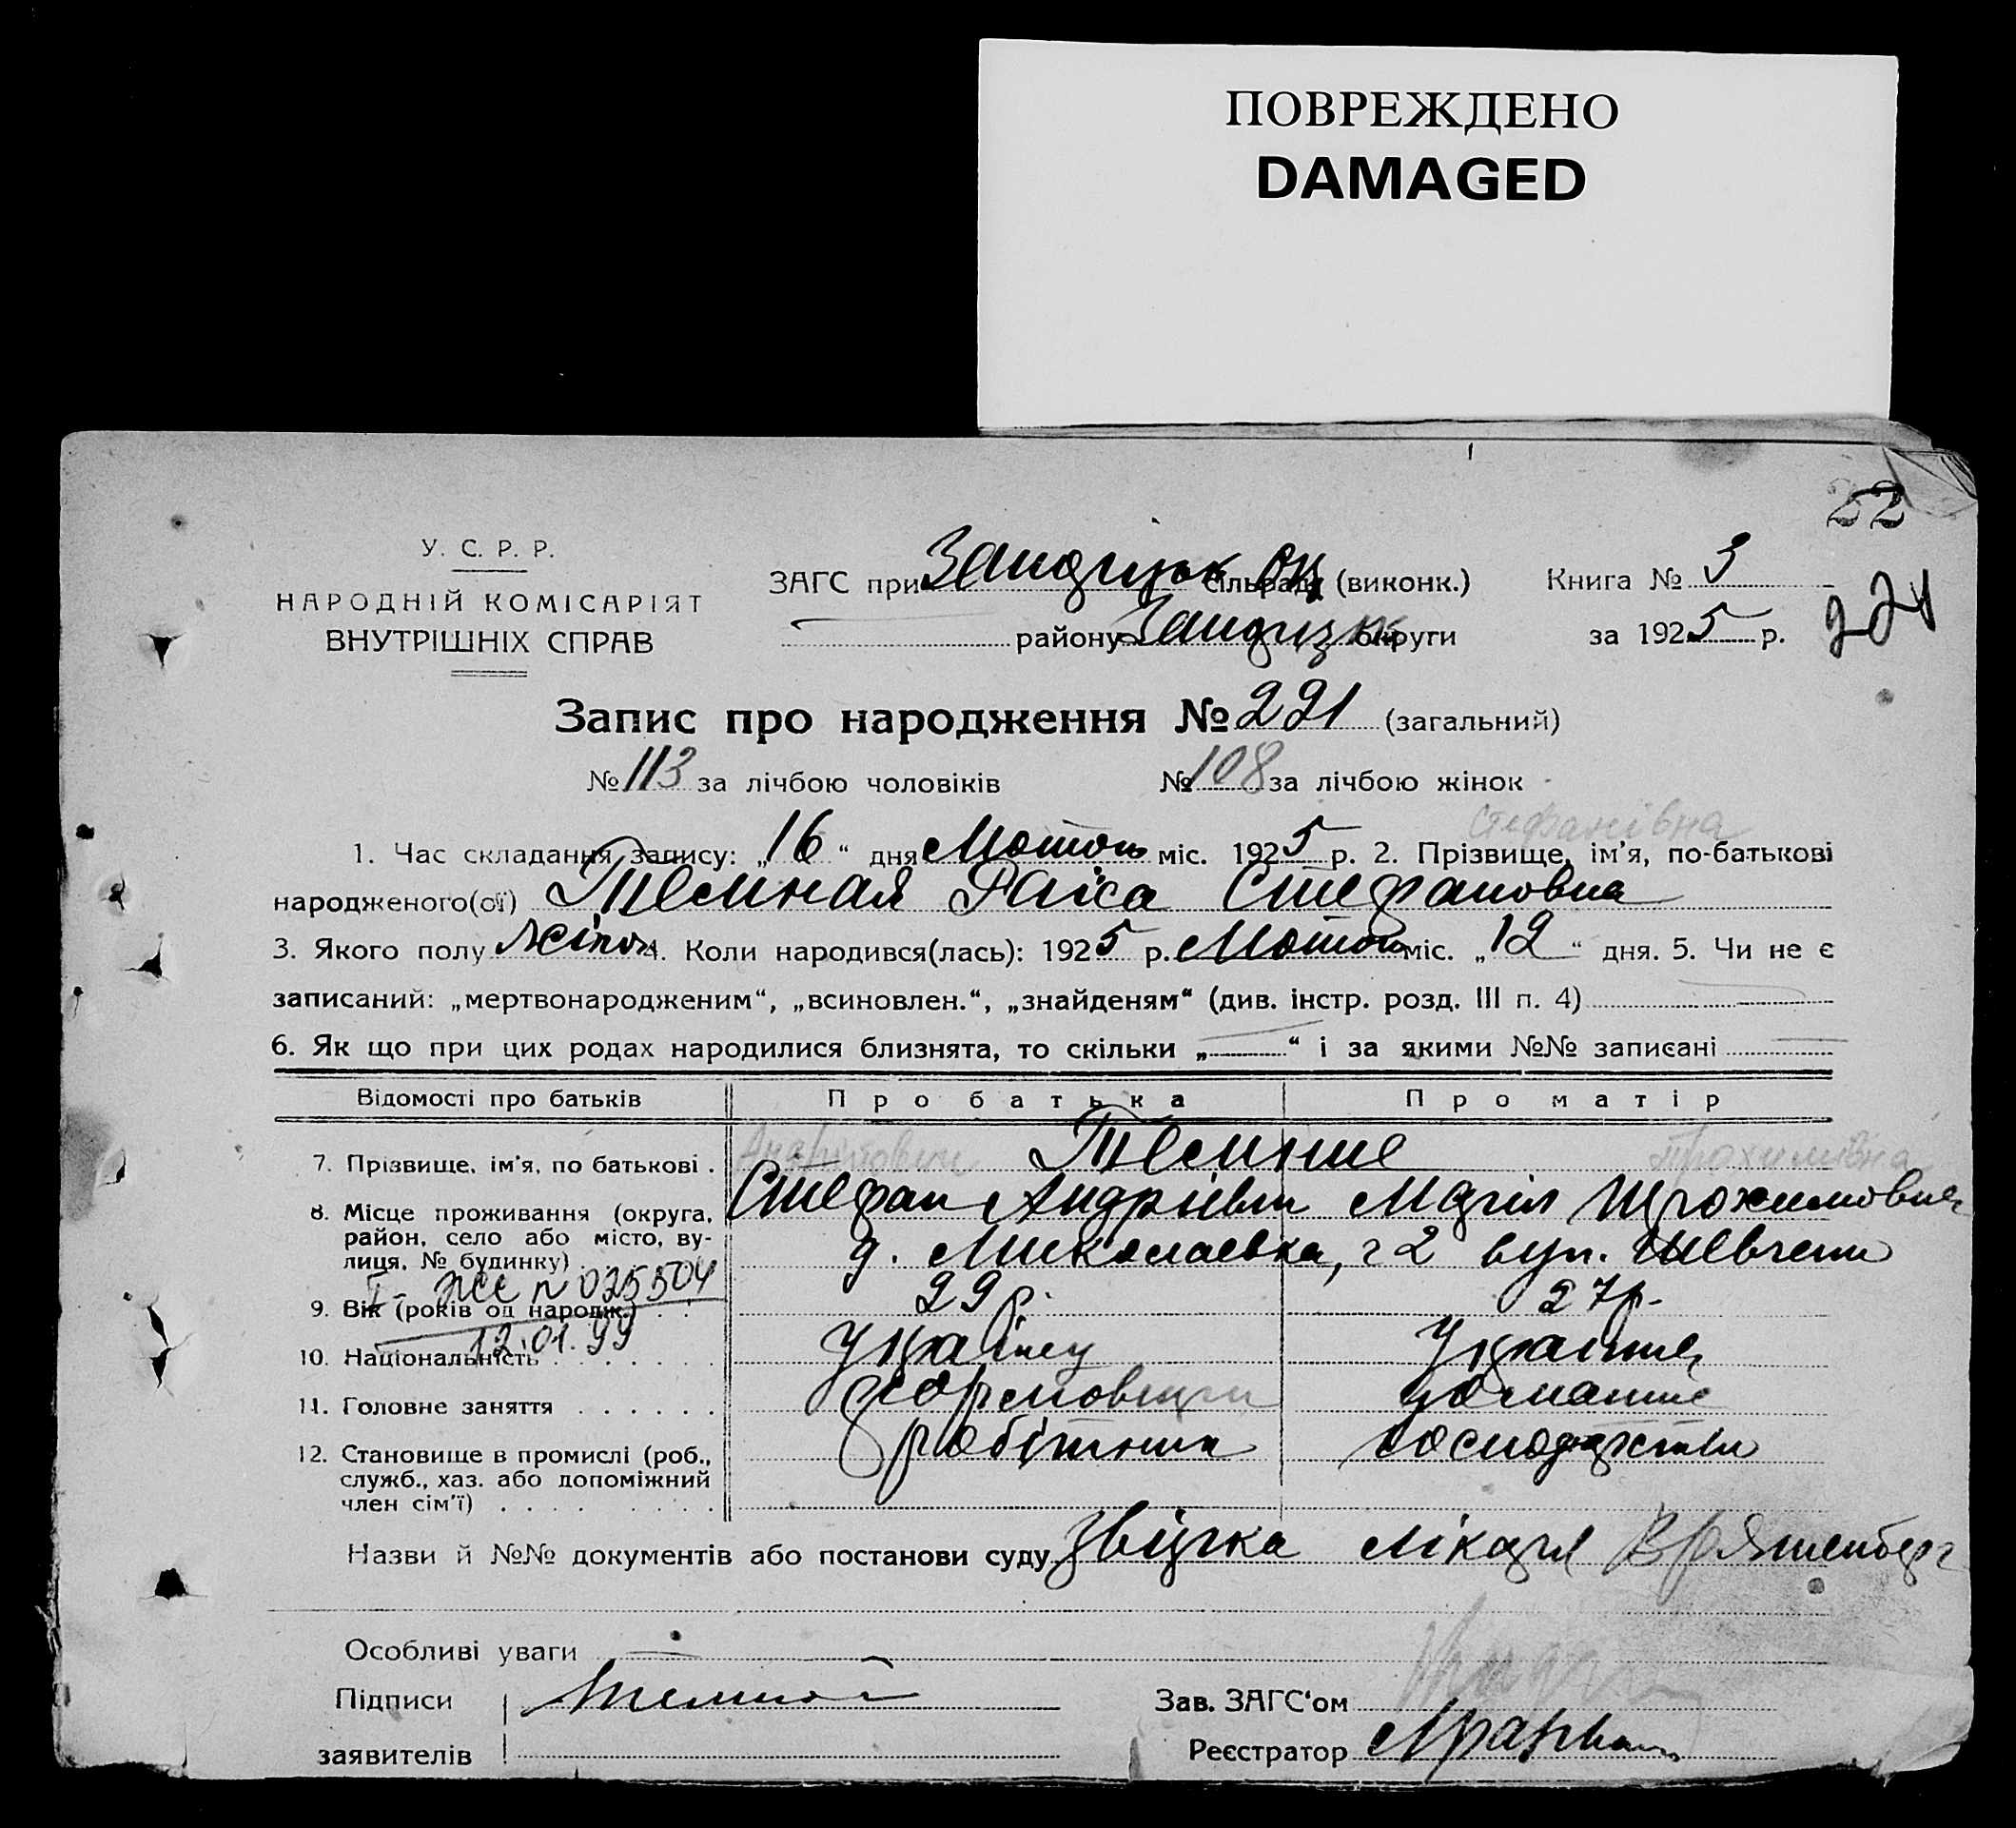 ПОВРЕЖДЕНО
DAMAGED
22
221
У. С. Р. Р.
НАРОДНІЙ КОМІСАРІЯТ
ВНУТРІШНІХ СПРАВ
ЗАГС при сільраді (виконк.) Книга № 3
району округи за 1925 р.
Запис про народження № 221 (загальний)
№ 113 за лічбою чоловіків № 108 за лічбою жінок
Стефанівна
1. Час складання запису: „16“ дня Лютого міс. 1925 р. 2. Прізвище, ім'я, по-батькові
народженого(ої) Темная Раїса Стефановна
3. Якого полу жіноч 4. Коли народився(лась): 1925 р. Лютого міс. „12“ дня. 5. Чи не є
записаний: „мертвонародженим“, „всиновлен.“, „знайденям“ (див. інстр. розд. III п. 4)
6. Як що при цих родах народилися близнята, то скільки „ “ і за якими №№ записані
Відомості про батьків Про батька Про матір
7. Прізвище, ім'я, по батькові . Темние
Стефан Марія Трохимовна
8. Місце проживання (округа, район, село або місто, вулиця, № будинку) . д. Миколаевка, 2 вул.
I - ЖС № 025504
9. Вік (років од народж.) . . 29 р. 27 р.
12.01.99
10. Національність . . . . . . . Українец Украинка
11. Головне заняття . . . . . . формовщик домашнє
12. Становище в промислі (роб., служб., хаз. або допоміжний член сім'ї) . . . . . . . робітник господарство
Назви й №№ документів або постанови суду Звістка лікаря
Особливі уваги
Підписи Темной Зав. ЗАГС'ом
заявителів Реєстратор